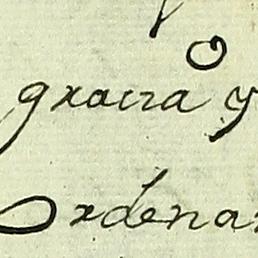 gracia y
Ordenan